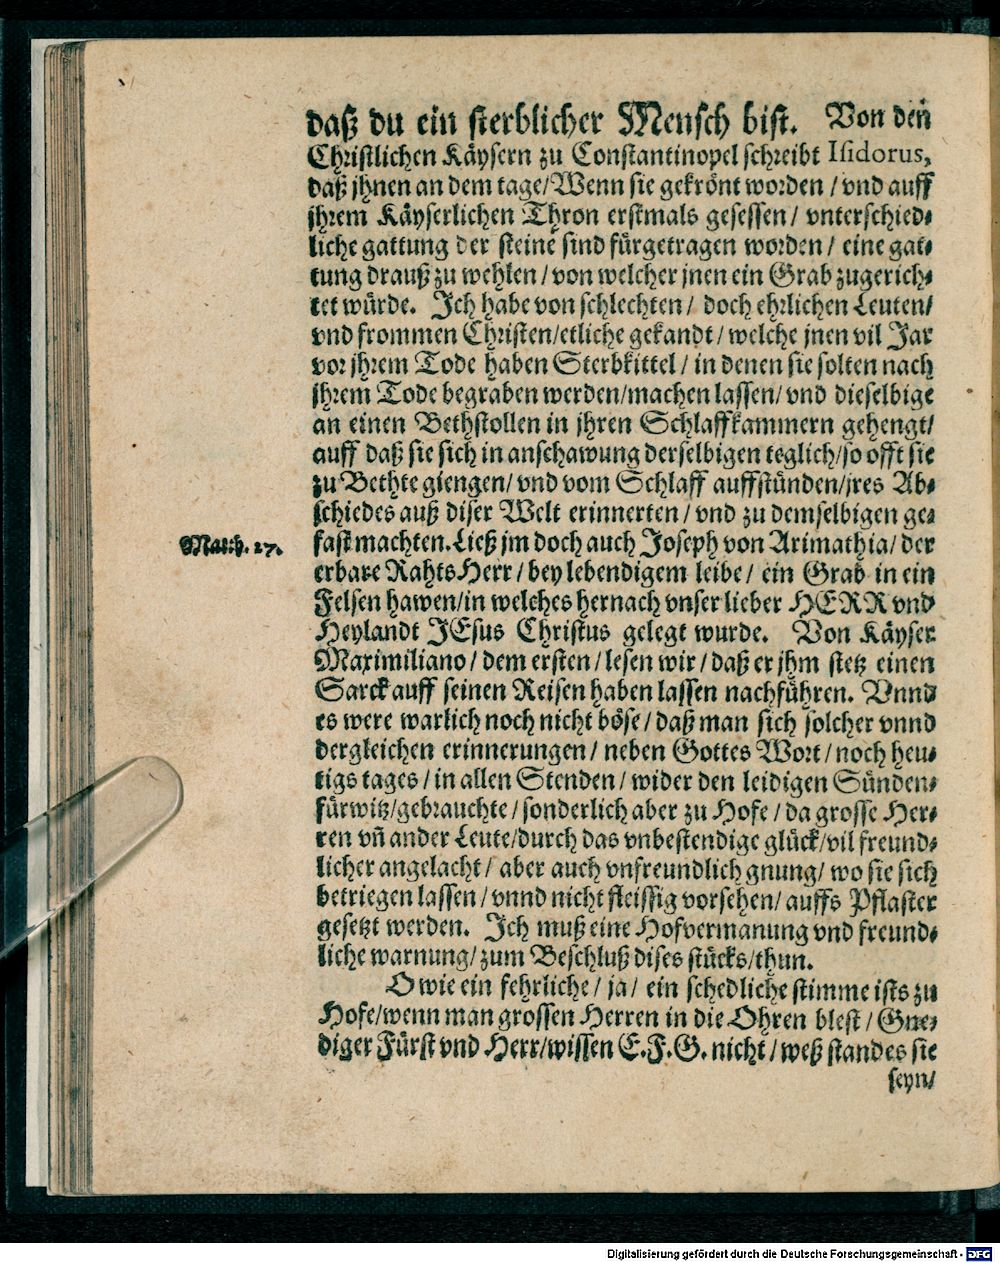 daß du ein sterblicher Mensch bist. Von den
Christlichen Käysern zu Constantinopel schreibt Isidorus,
daß jhnen an dem tage/Wenn sie gekrönt worden / vnd auff
jhrem Käyserlichen Thron erstmals gesessen / vnterschied-
liche gattung der steine sind fürgetragen worden / eine gat-
tung drauß zu wehlen / von welcher jnen ein Grab zugerich-
tet würde. Ich habe von schlechten / doch ehrlichen Leuten/
vnd frommen Christen/etliche gekandt / welche jnen vil Jar
vor jhrem Tode haben Sterbkittel / in denen sie solten nach
jhrem Tode begraben werden/machen lassen/ vnd dieselbige
an einen Bethstollen in jhren Schlaffkammern gehengt/
auff daß sie sich in anschawung derselbigen teglich/so offt sie
zu Bethte giengen/ vnd vom Schlaff auffstünden/jres Ab-
schiedes auß diser Welt erinnerten / vnd zu demselbigen ge-
fast machten. Ließ jm doch auch Joseph von Arimathia/ der
Matth. 27.
erbare RahtsHerr / bey lebendigem leibe / ein Grab in ein
Felsen hawen/in welches hernach vnser lieber HERR vnd
Heylandt JEsus Christus gelegt wurde. Von Käyser
Maximiliano / dem ersten / lesen wir / daß er jhm stetz einen
Sarck auff seinen Reisen haben lassen nachführen. Vnnd
es were warlich noch nicht böse / daß man sich solcher vnnd
dergleichen erinnerungen / neben Gottes Wort / noch heu-
tigs tages / in allen Stenden / wider den leidigen Sünden-
fürwitz/gebrauchte / sonderlich aber zu Hofe / da grosse Her-
ren vñ ander Leute/durch das vnbestendige glück/vil freund-
licher angelacht / aber auch vnfreundlich gnung/ wo sie sich
betriegen lassen / vnnd nicht fleissig vorsehen/ auffs Pflaster
gesetzt werden. Ich muß eine Hofvermanung vnd freund-
liche warnung/ zum Beschluß dises stücks/thun.
O wie ein fehrliche / ja / ein schedliche stimme ists zu
Hofe/wenn man grossen Herren in die Ohren blest / Gne-
diger Fürst vnd Herr/wissen E. F. G. nicht / weß standes sie
seyn/
Digitalisierung gefördert durch die Deutsche Forschungsgemeinschaft - DFG